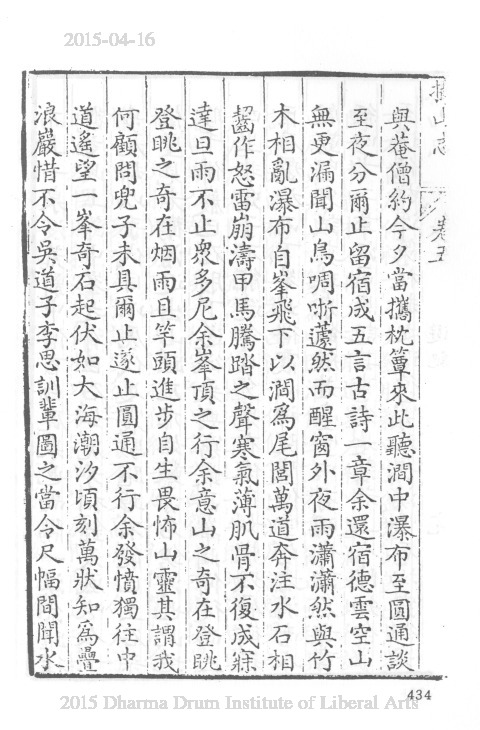 2015-04-16
與菴僧約今夕當攜枕簟來此聽澗中瀑布至圓通談
至夜分爾止留宿成五言古詩一章余還宿德雲空山
無更漏聞山鳥啁哳蘧然而醒窗外夜雨瀟瀟然與竹
木相亂瀑布自峯飛下以澗爲尾閭萬道奔注水石相
齧作怒雷崩濤甲馬騰踏之聲寒氣薄肌骨不復成寐
達旦雨不止衆多尼余峯頂之行余意山之奇在登眺
登眺之奇在烟雨且竿頭進步自生畏怖山靈其謂我
何顧問兜子未具爾止遂止圓通不行余發憤獨往中
道遙望一峯奇石起伏如大海潮汐頃刻萬狀知爲疊
浪巖惜不令吳道子李思訓輩圖之當令尺幅間聞水
卷五
434
2015 Dharma Drum Institute of Liberal Arts